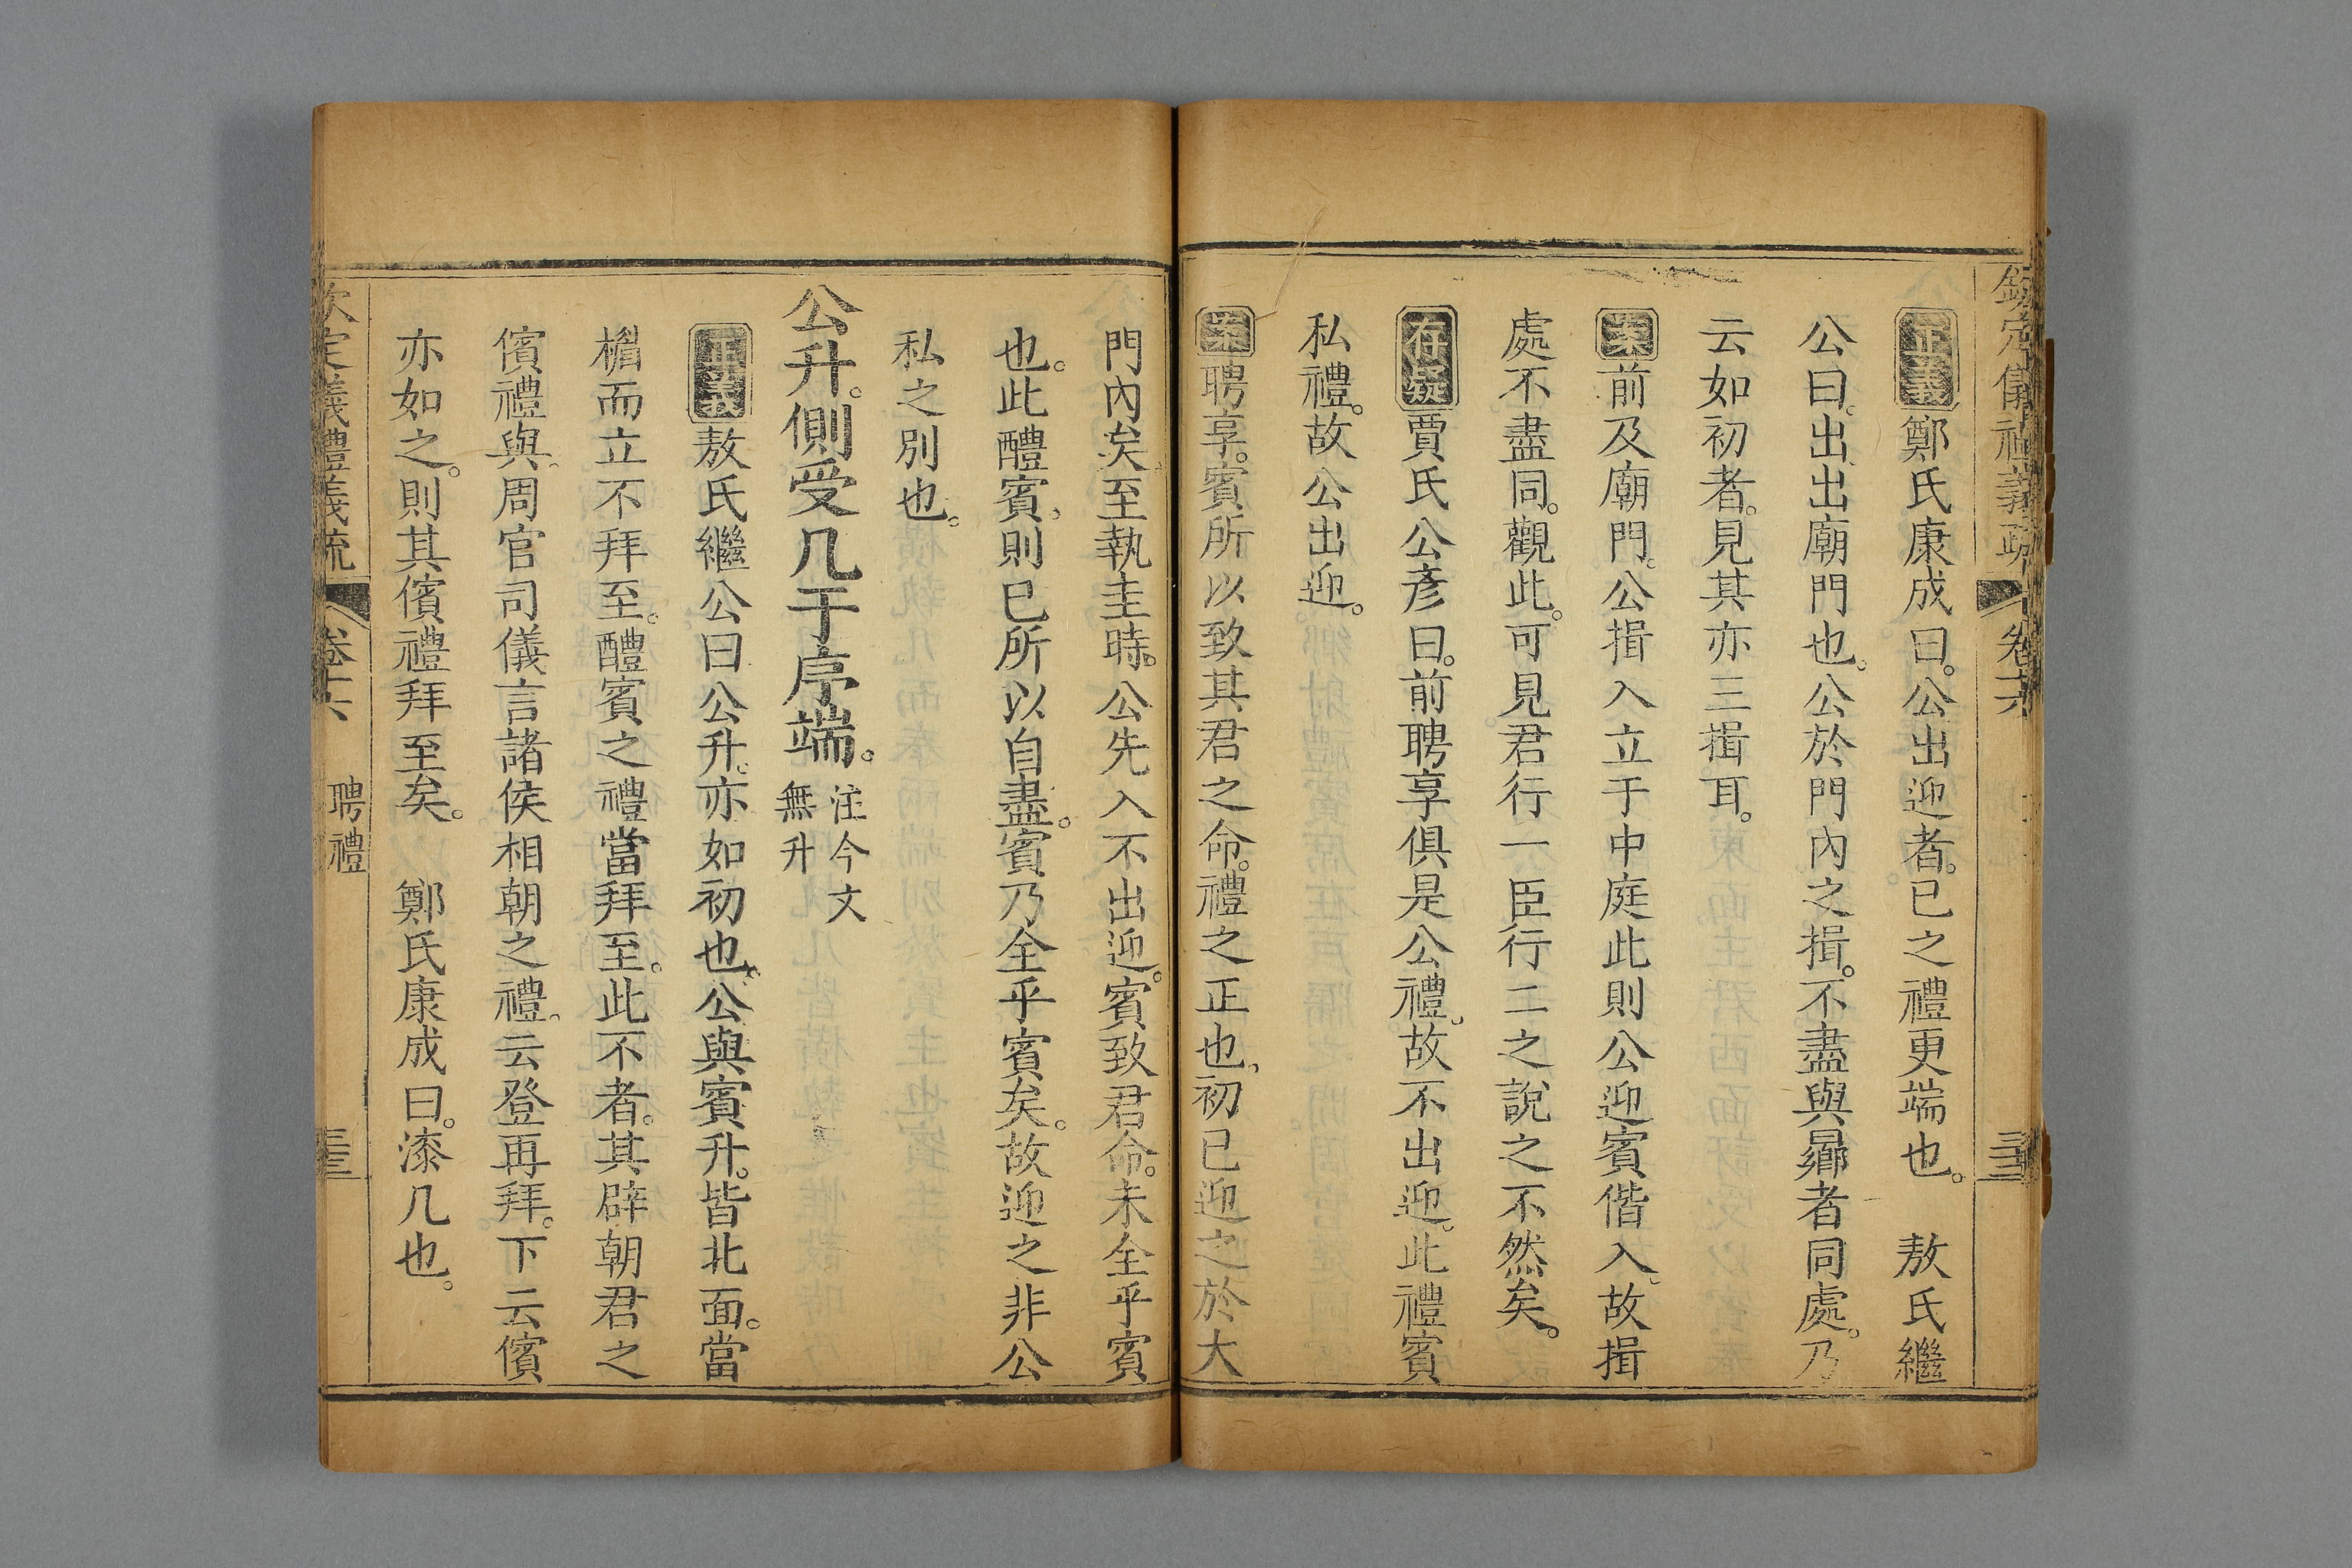 欽定儀禮義疏 卷十六
正義鄭氏康成曰。公出迎者。已之禮更端也。 敖氏繼
公曰。出出廟門也。公於門內之揖。不盡與曏者同處。乃
云如初者。見其亦三揖耳。
案前及廟門。公揖入立于中庭此則公迎賓偕入。故揖
處不盡同。觀此。可見君行一臣行二之說之不然矣。
存疑賈氏公彥曰。前聘享俱是公禮。故不出迎。此禮賓
私禮。故公出迎。
案聘享。賓所以致其君之命。禮之正也。初已迎之於大
門內矣至執圭時。公先入不出迎。賓致君命。未全乎賓
也。此醴賓。則已所以自盡。賓乃全乎賓矣。故迎之非公
私之別也。
公升。側受几于序端。注今文無升
正義敖氏繼公曰公升。亦如初也。公與賓升。皆北面。當
楣而立不拜至。醴賓之禮當拜至。此不者。其辟朝君之
儐禮與。周官司儀言諸侯相朝之禮。云登再拜。下云儐
亦如之。則其儐禮拜至矣。 鄭氏康成曰。漆几也。
欽定儀禮義疏 卷十六 聘禮